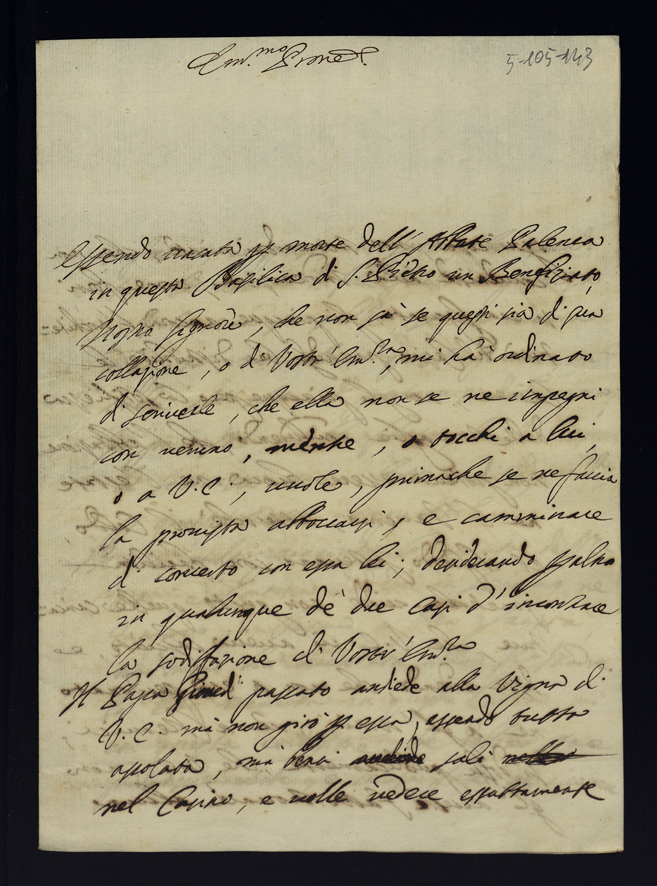 Em.mo Prone
5-105-143
Essendo vacata p morte dell' Abbate Valenza
in questa Basilica di S. Pietro un Benefiziato,
Nostro Signore, che non sà se questi sia di sua
collazione, o di Vostr' Em.za, mi hà ordinato
di scriverle, che ella non se ne impegni
con veruno, mentre, o tocchi a lui,
o a V.E., vuole, primache se ne faccia
la provista abboccarsi, e camminare
di concerto con essa lei; desiderando
in qualunque de' due casi d'incontrare
la sodisfazione di Vostr' Em.za
Il Papa Giovedì passato andiede alla Vigna di
V.E. mà non girò p essa, essendo tutta
, mà bensì salì
nel Casino, e volle vedere esattamente